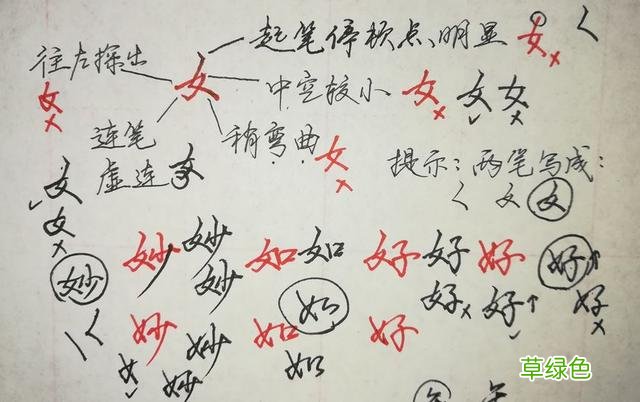 起笔停顿点、明显 女
往左探出 女 中空较小 女 女 女
女
连笔 稍弯曲 女
虚连 女 提示：两笔写成：
女 く 女 女
女
妙 妙 妙 如 如 好 好 好 好
妙 如 好 好 好
妙 妙 如 好
女 妙 如
草绿色